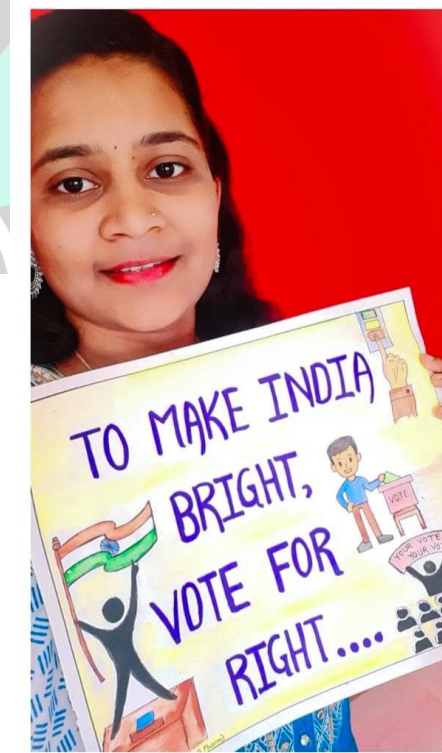 TO MAKE INDIA
BRIGHT,
VOTE FOR
RIGHT....
VOTE
YOUR VOTE
YOUR VO